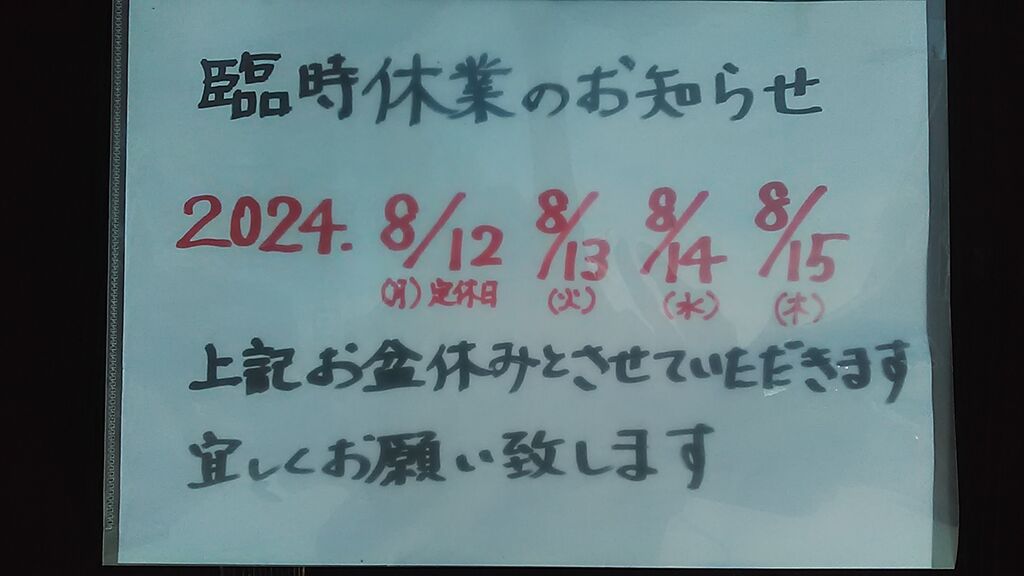 臨時休業のお知らせ
2024. 8/12 8/13 8/14 8/15
(月)定休日 (火) (水) (木)
上記お盆休みとさせていただきます
宜しくお願い致します